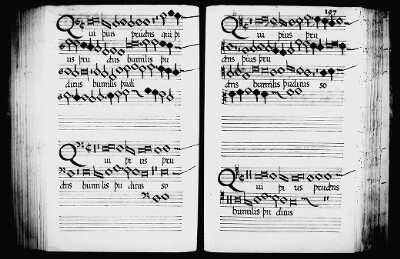 Qui pius prudens qui pi
us pru dens humilis pu
dicus humilis pudi
Qui pi us pru
dens humilis pu dicus so
147
Qui pius pru
dens pius pru
dens humilis pudicus so
Qui pi us prudens
humilis pu dicus